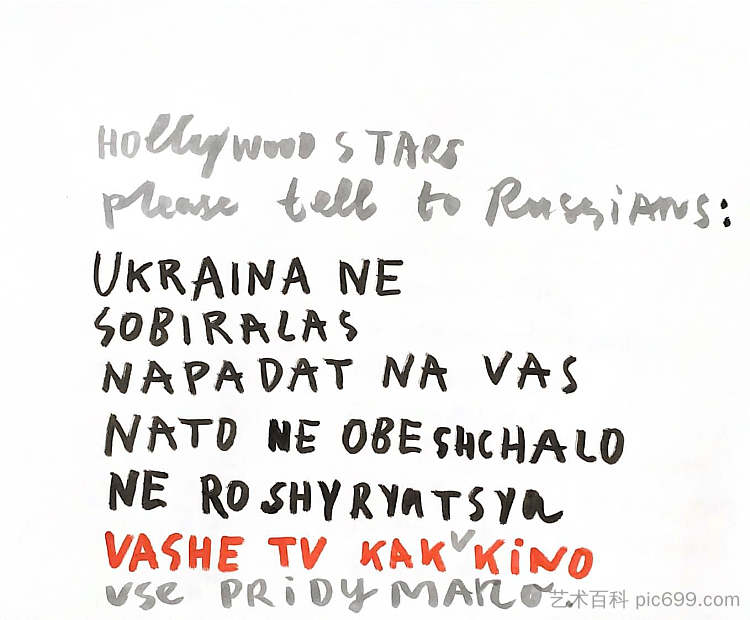 HOllywood STARS
please tell to RussiANS:
UKRAINA NE
SOBIRALAS
NAPADAT NA VAS
NATO NE OBESHCHALO
NE ROSHYRYATSYA
VASHE TV KAK V KiNO
vse PRiDYMANO.
艺术百科 pic699.com